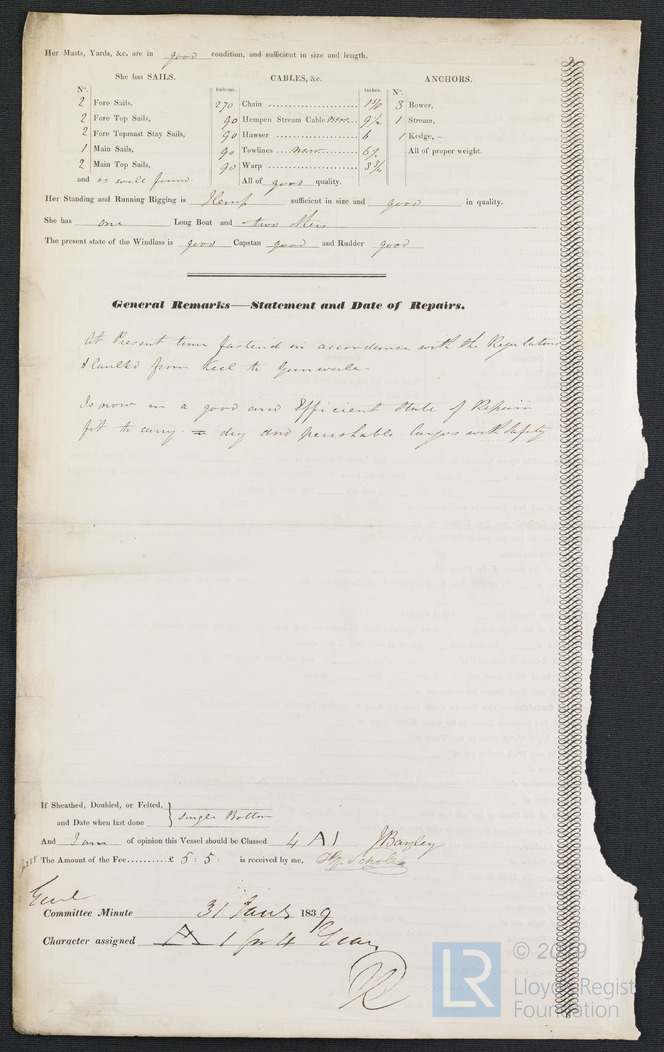 Her Masts, Yards, &c. are in good condition, and sufficient in size and length.
She has SAILS. CABLES, &c. ANCHORS.
N°. Fathoms. Inches. N°.
2 Fore Sails, 270 Chain 3 Bower,
2 Fore Top Sails, 90 Hempen Stream Cable 9½ 1 Stream,
2 Fore Topmast Stay Sails, 90 Hawser 6 1 Kedge, –
1 Main Sails, 90 Towlines All of proper weight.
2 Main Top Sails, 90 Warp
and as well found All of good quality.
Her Standing and Running Rigging is Hemp sufficient in size and good in quality.
She has one Long Boat and two others
The present state of the Windlass is good Capstan good and Rudder good
General Remarks—Statement and Date of Repairs.
At Present time fastend in accordance with the Regulations
& Caulkd from Keel to Gunwale –
Is now in a good and Efficient State of Repair
fit to carry dry and perishable Cargos with Safety
If Sheathed, Doubled, or Felted,
and Date when last done Single Bottom
And I am of opinion this Vessel should be Classed 4 A 1 J Bayley
The Amount of the Fee..........£ 5 : 5 : is received by me,
Committee Minute 31 1839
Character assigned A 1 for 4 Years
LR
© 2019
Lloyd's Register
Foundation